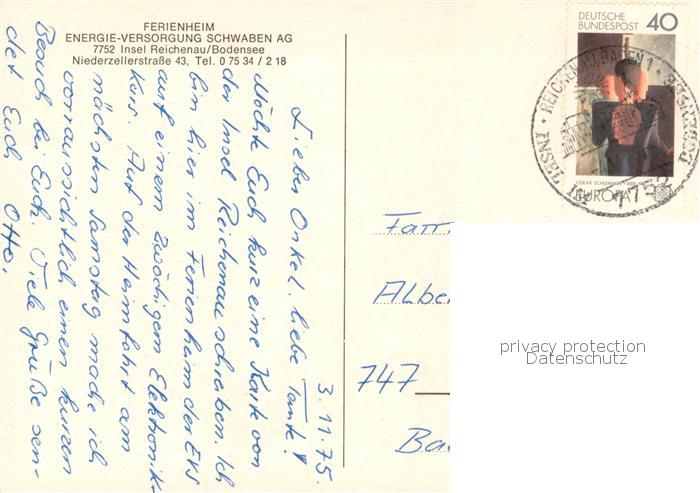 FERIENHEIM
ENERGIE-VERSORGUNG SCHWABEN AG
7752 Insel Reichenau/Bodensee
Niederzellerstraße 43, Tel. 0 75 34 / 2 18
3. 11. 75.
Lieber Onkel, liebe Tante!
Möchte Euch kurz eine Karte von
der Insel Reichenau schreiben. Ich
bin hier im Ferienheim der EVS
auf einem 2wöchigem Elektronik-
Kurs. Auf der Heimfahrt am
nächsten Samstag mache ich
voraussichtlich einen kurzen
Besuch bei Euch. Viele Grüße sen-
det Euch Otto.
DEUTSCHE
BUNDESPOST 40
OSKAR SCHLEMMER
EUROPA
REICHENAU, BADEN 1
INSEL IM
775
Fam
Albe
747
Ba
privacy protection
Datenschutz